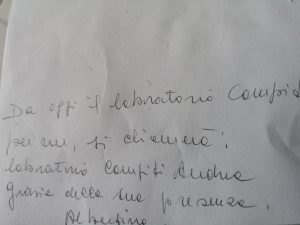 Da oggi il laboratorio
per me, si chiamerà:
laboratorio Compiti Andrea
grazie della sua presenza.
Albertino